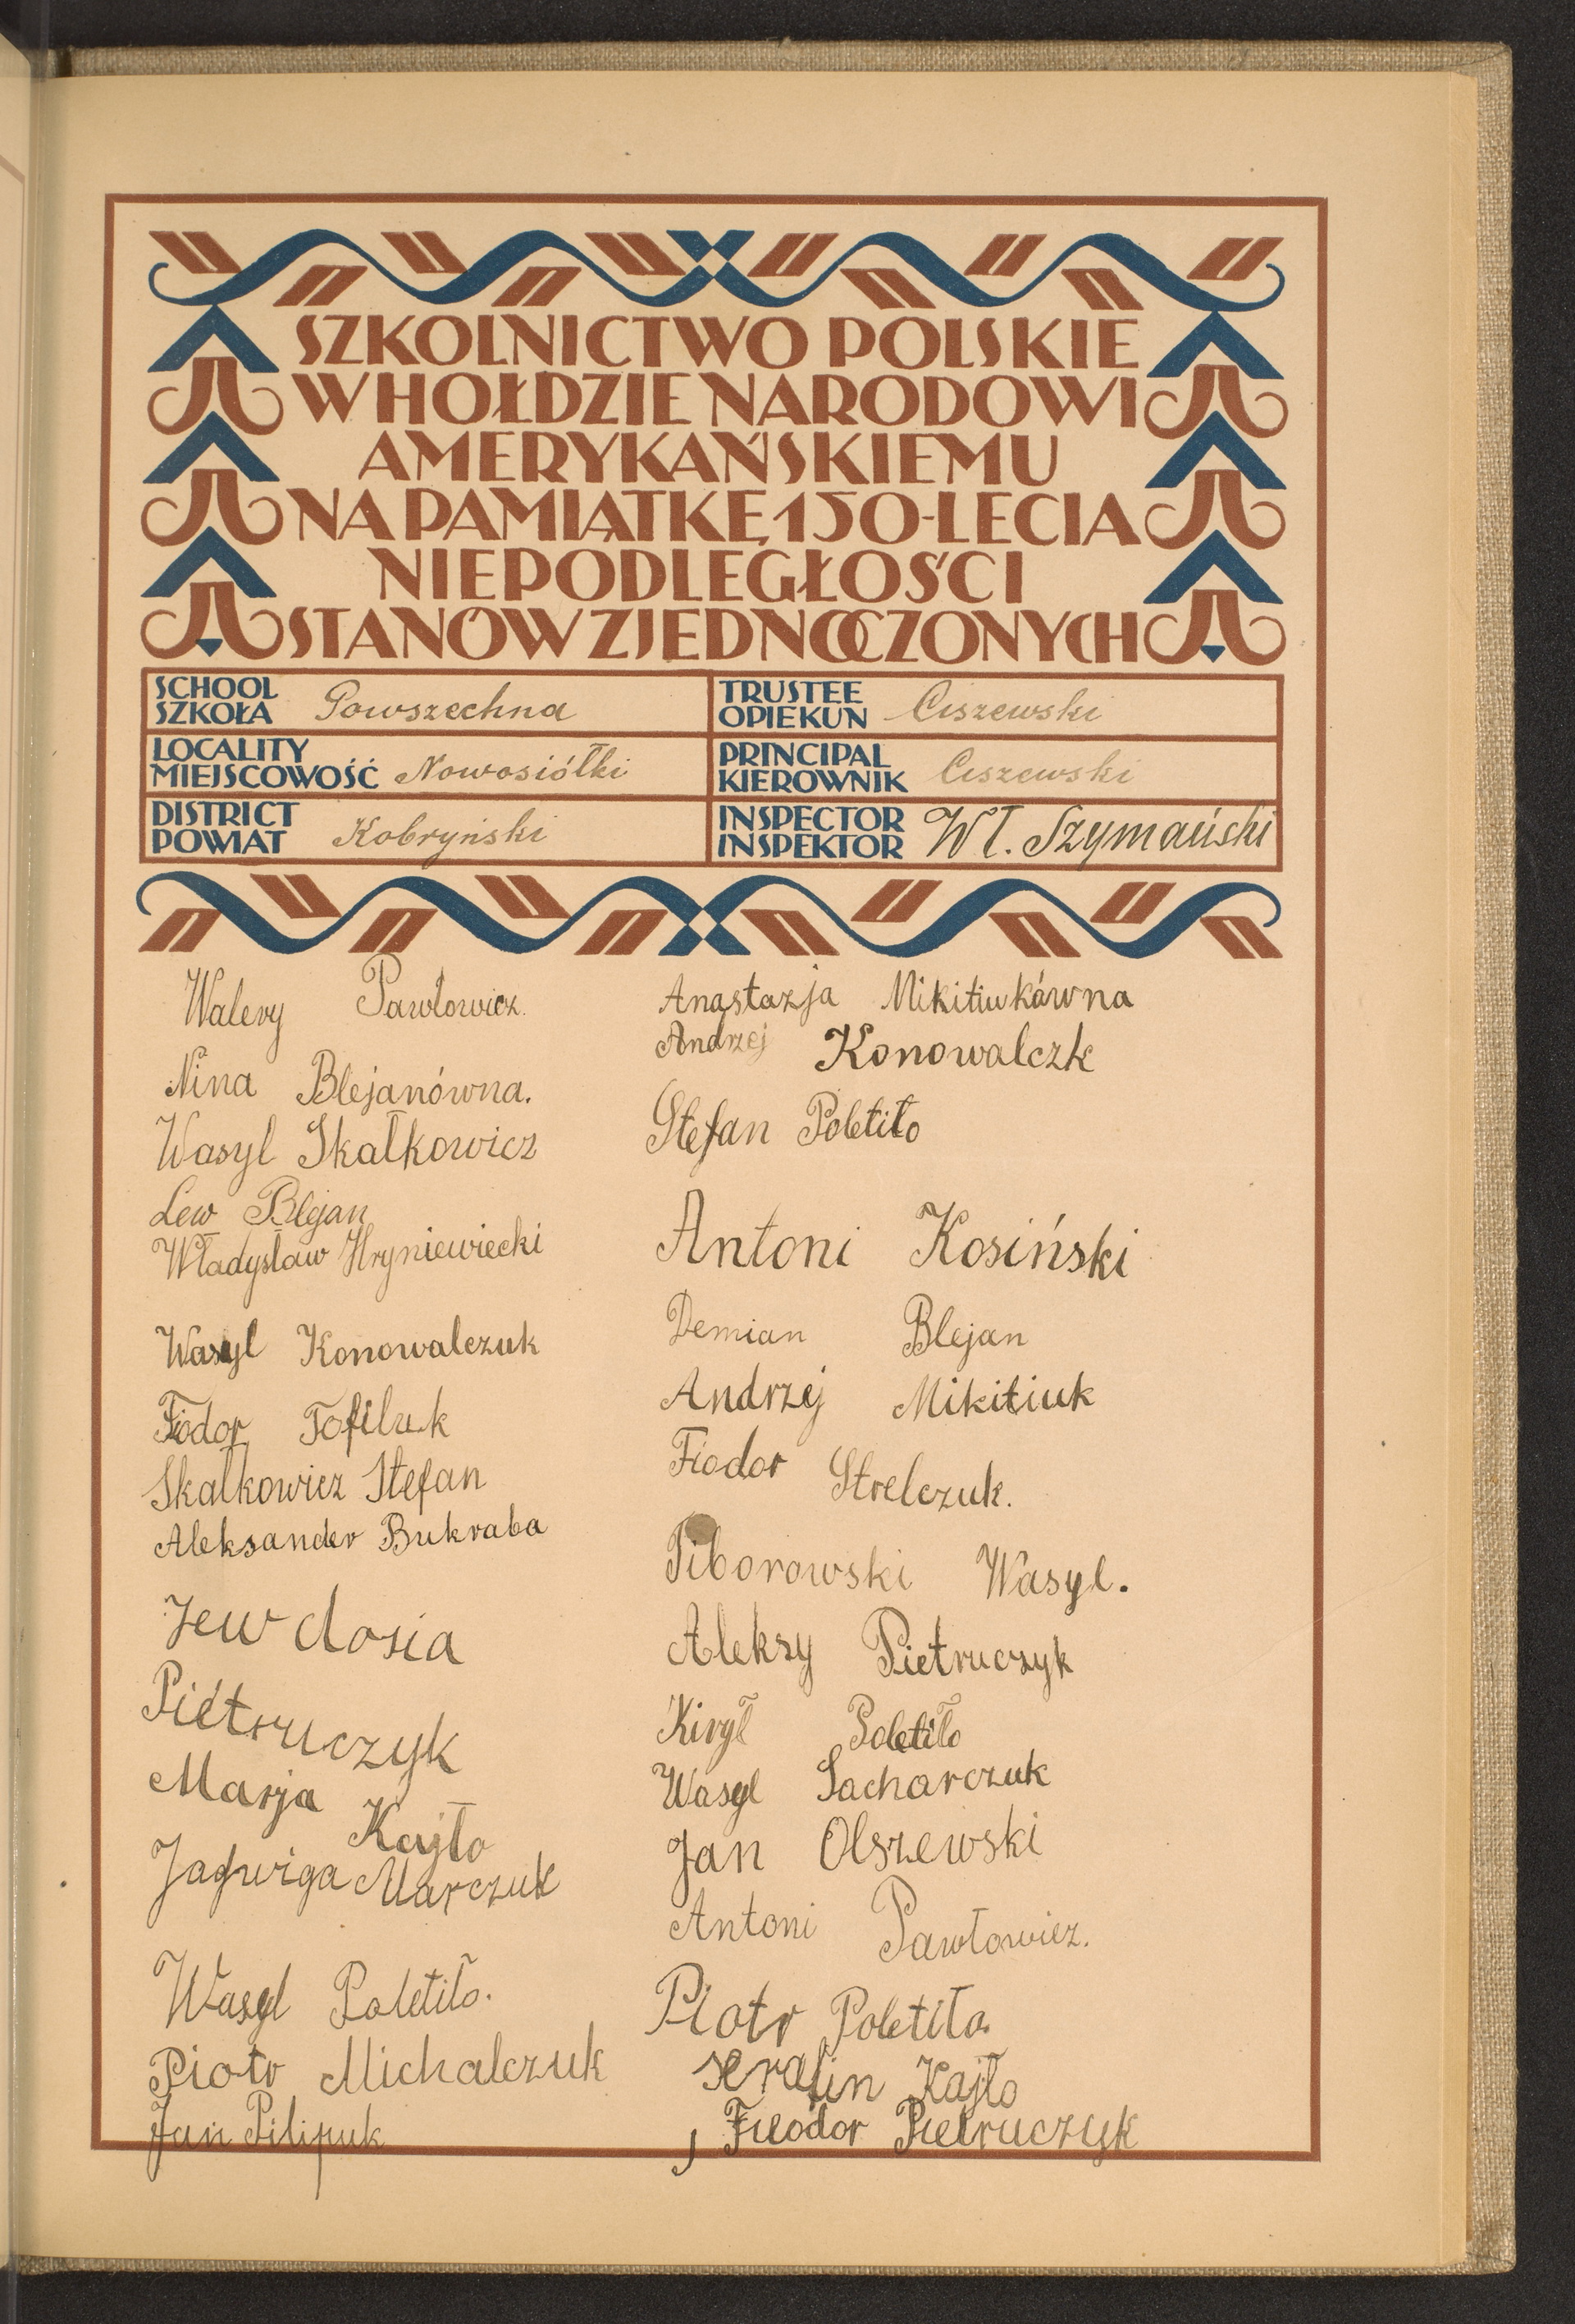 SZKOLNICTWO POLSKIE
W HOŁDZIE NARODOWI
AMERYKAŃSKIEMU
NA PAMIĄTKĘ 150-LECIA
NIEPODLEGŁOŚCI
STANÓW ZJEDNOCZONYCH
SCHOOL
SZKOŁA Powszechna
TRUSTEE
OPIEKUN Ciszewski
LOCALITY
MIEJSCOWOŚĆ Nowosiółki
PRINCIPAL
KIEROWNIK Ciszewski
DISTRICT
POWIAT Kobryński
INSPECTOR
INSPEKTOR Wł. Szymański
Walery Pawłowicz.
Nina Blejanówna.
Wasyl Skałkowicz
Lew Blejan
Władysław Hryniewiecki
Wasyl Konowalczuk
Fiodor Tofiluk
Skałkowicz Stefan
Aleksander Bukraba
Jewdosia
Pietruczyk
Marja Kajło
Jadwiga Marczuk
Wasyl Poletiło.
Piotr Michalczuk
Jan Pilipuk
Anastazja Mikitiukówna
Andrzej Konowalczk
Stefan Poletiło
Antoni Kosiński
Demian Blejan
Andrzej Mikitiuk
Fiodor Strelczuk.
Piborowski Wasyl.
Aleksy Pietruczyk
Kirył Poletiło
Wasyl Sacharczuk
Jan Olszewski
Antoni Pawłowicz.
Piotr Poletiło.
serafin Kajło
Fieodor Pietruczyk